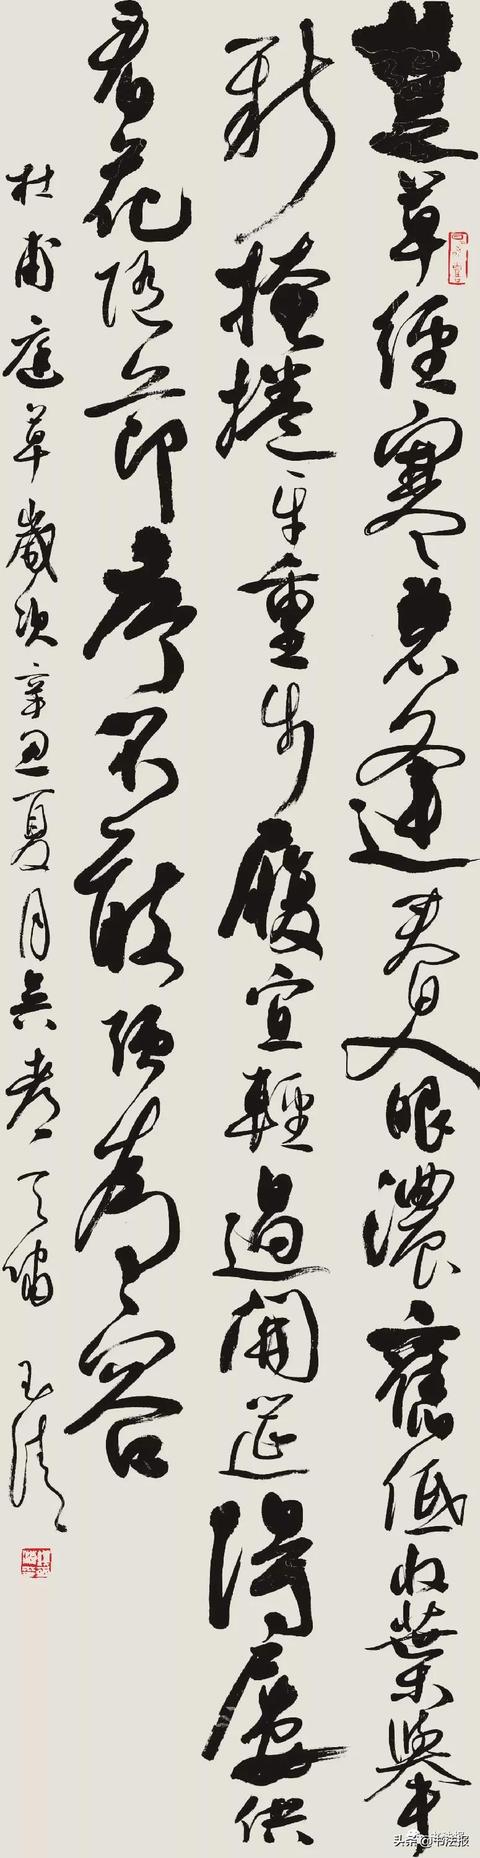 楚草經寒碧逢春入眼濃舊低收葉舉
新掩捲牙重步履宜輕過開筵得屢供
看花隨節序不敢強為容
杜甫庭草歲次辛丑夏月
头条 @书法报